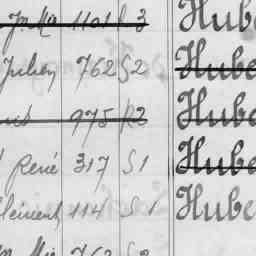 1101 S 3 Hube
Julien 762 S 2 Hube
975 R2 Hube
René 317 S 1 Hube
Clement 114 S 1 Hube
762